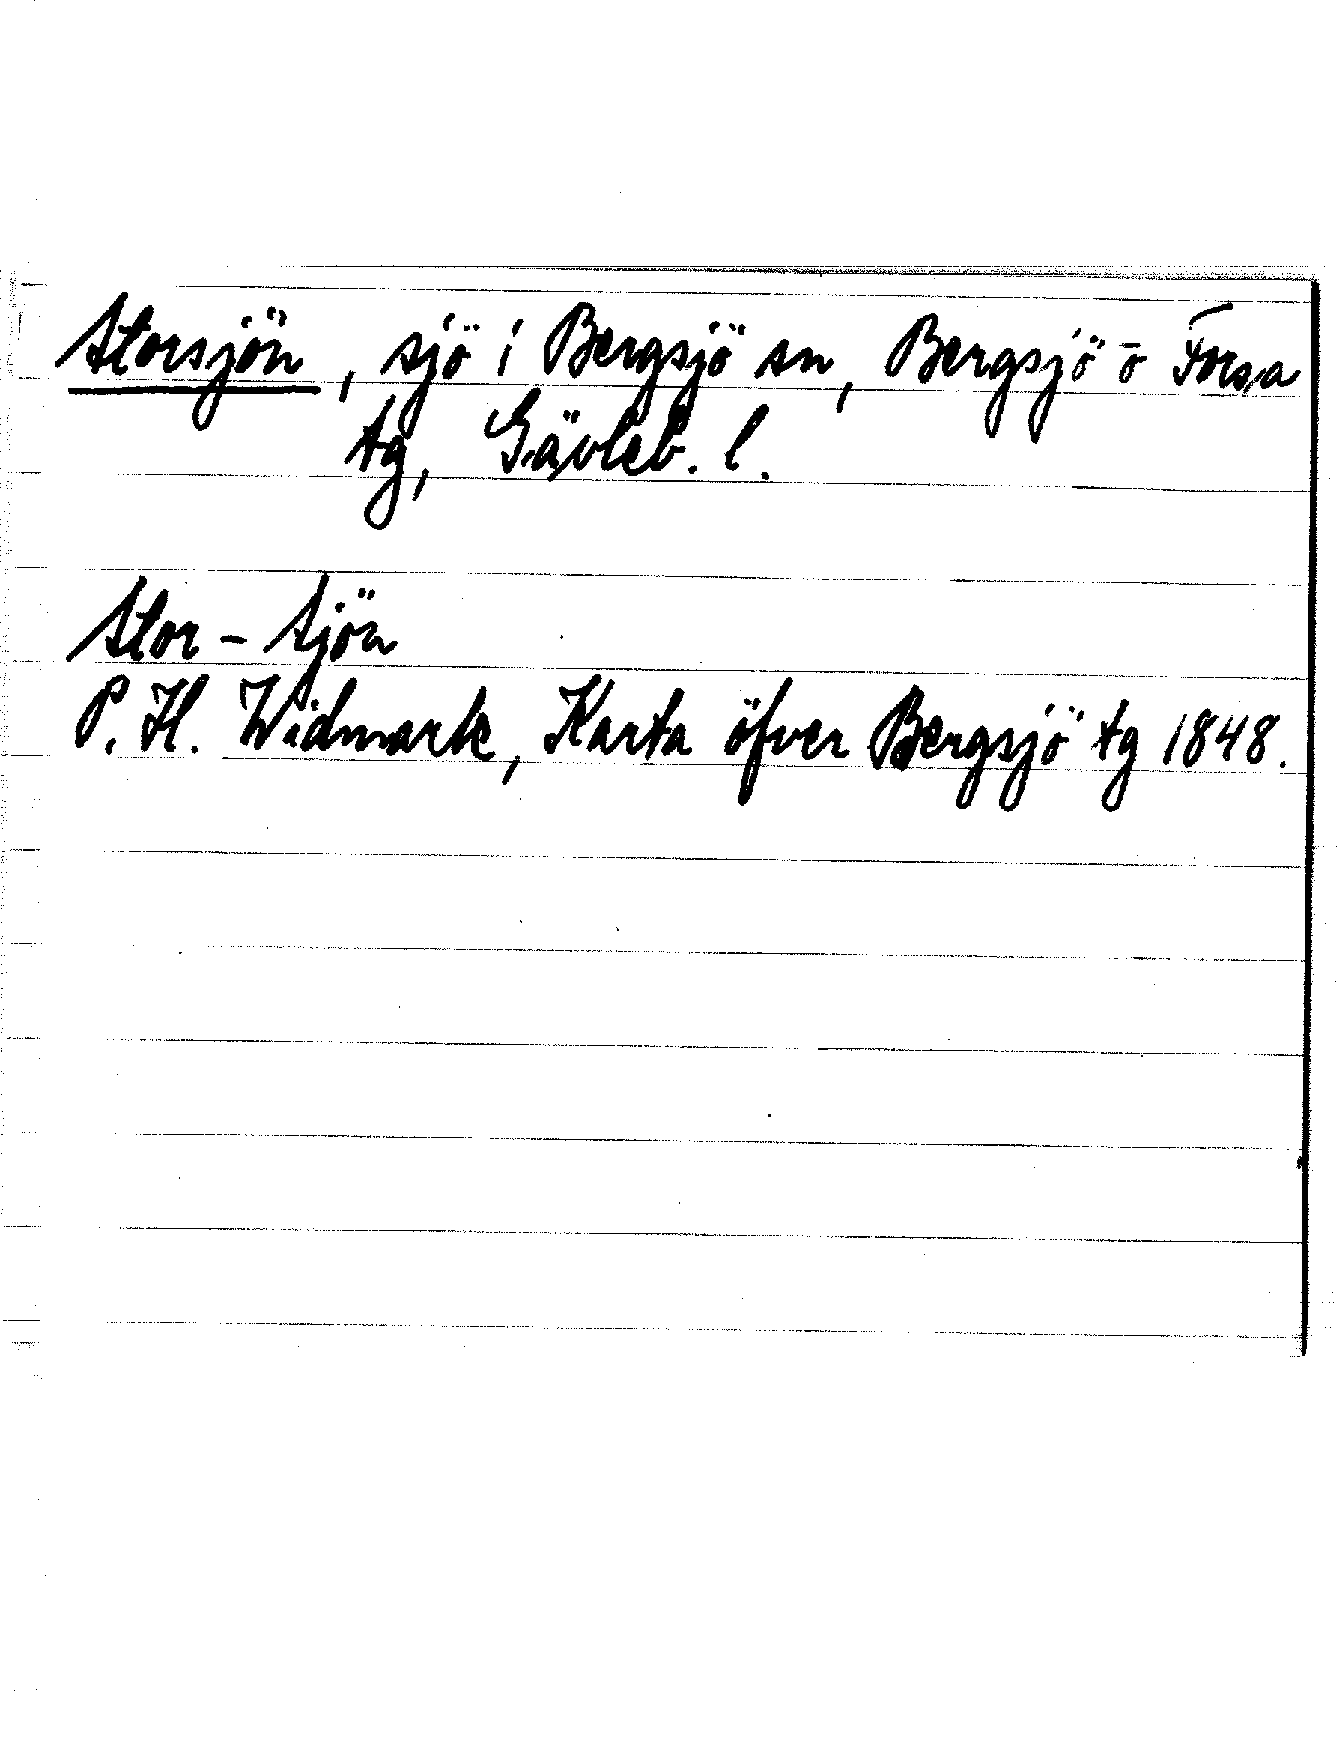 Storsjön, sjö i Bergsjö sn, Bergsjö o Forsa
tg, Gävleb. l.
Stor-Sjön
P. H. Widmark, Karta öfver Bergsjö tg 1848.